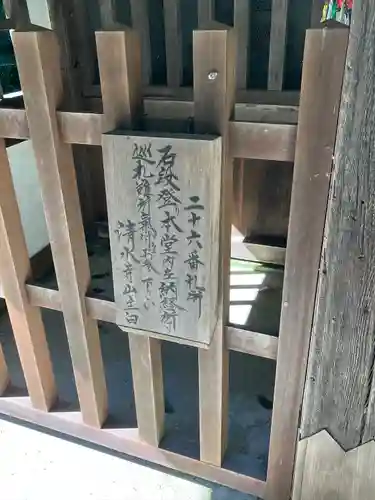 二十六番札所
石段登本堂内左納経所
巡礼 下さい
清水寺山主白